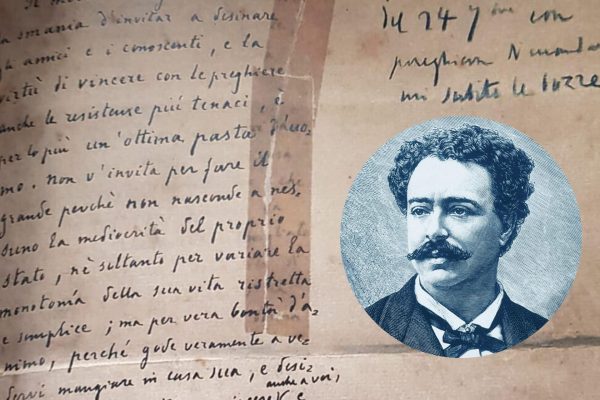 la smania d'invitar a desinare
gli amici e i conoscenti, e la
virtù di vincere con le preghiere
anche le resistenze più tenaci, è
per lo più un'ottima pasta d'uo-
mo. Non v'invita per fare il
grande perchè non nasconde a nes-
suno la mediocrità del proprio
stato, nè soltanto per variare la
monotonía della sua vita ristretta
e semplice; ma per vera bontà d'a-
nimo, perché gode veramente a ve-
dervi mangiare in casa sua, e desi-
anche a voi,
Il 24 con
preghiera
mi subito le bozze